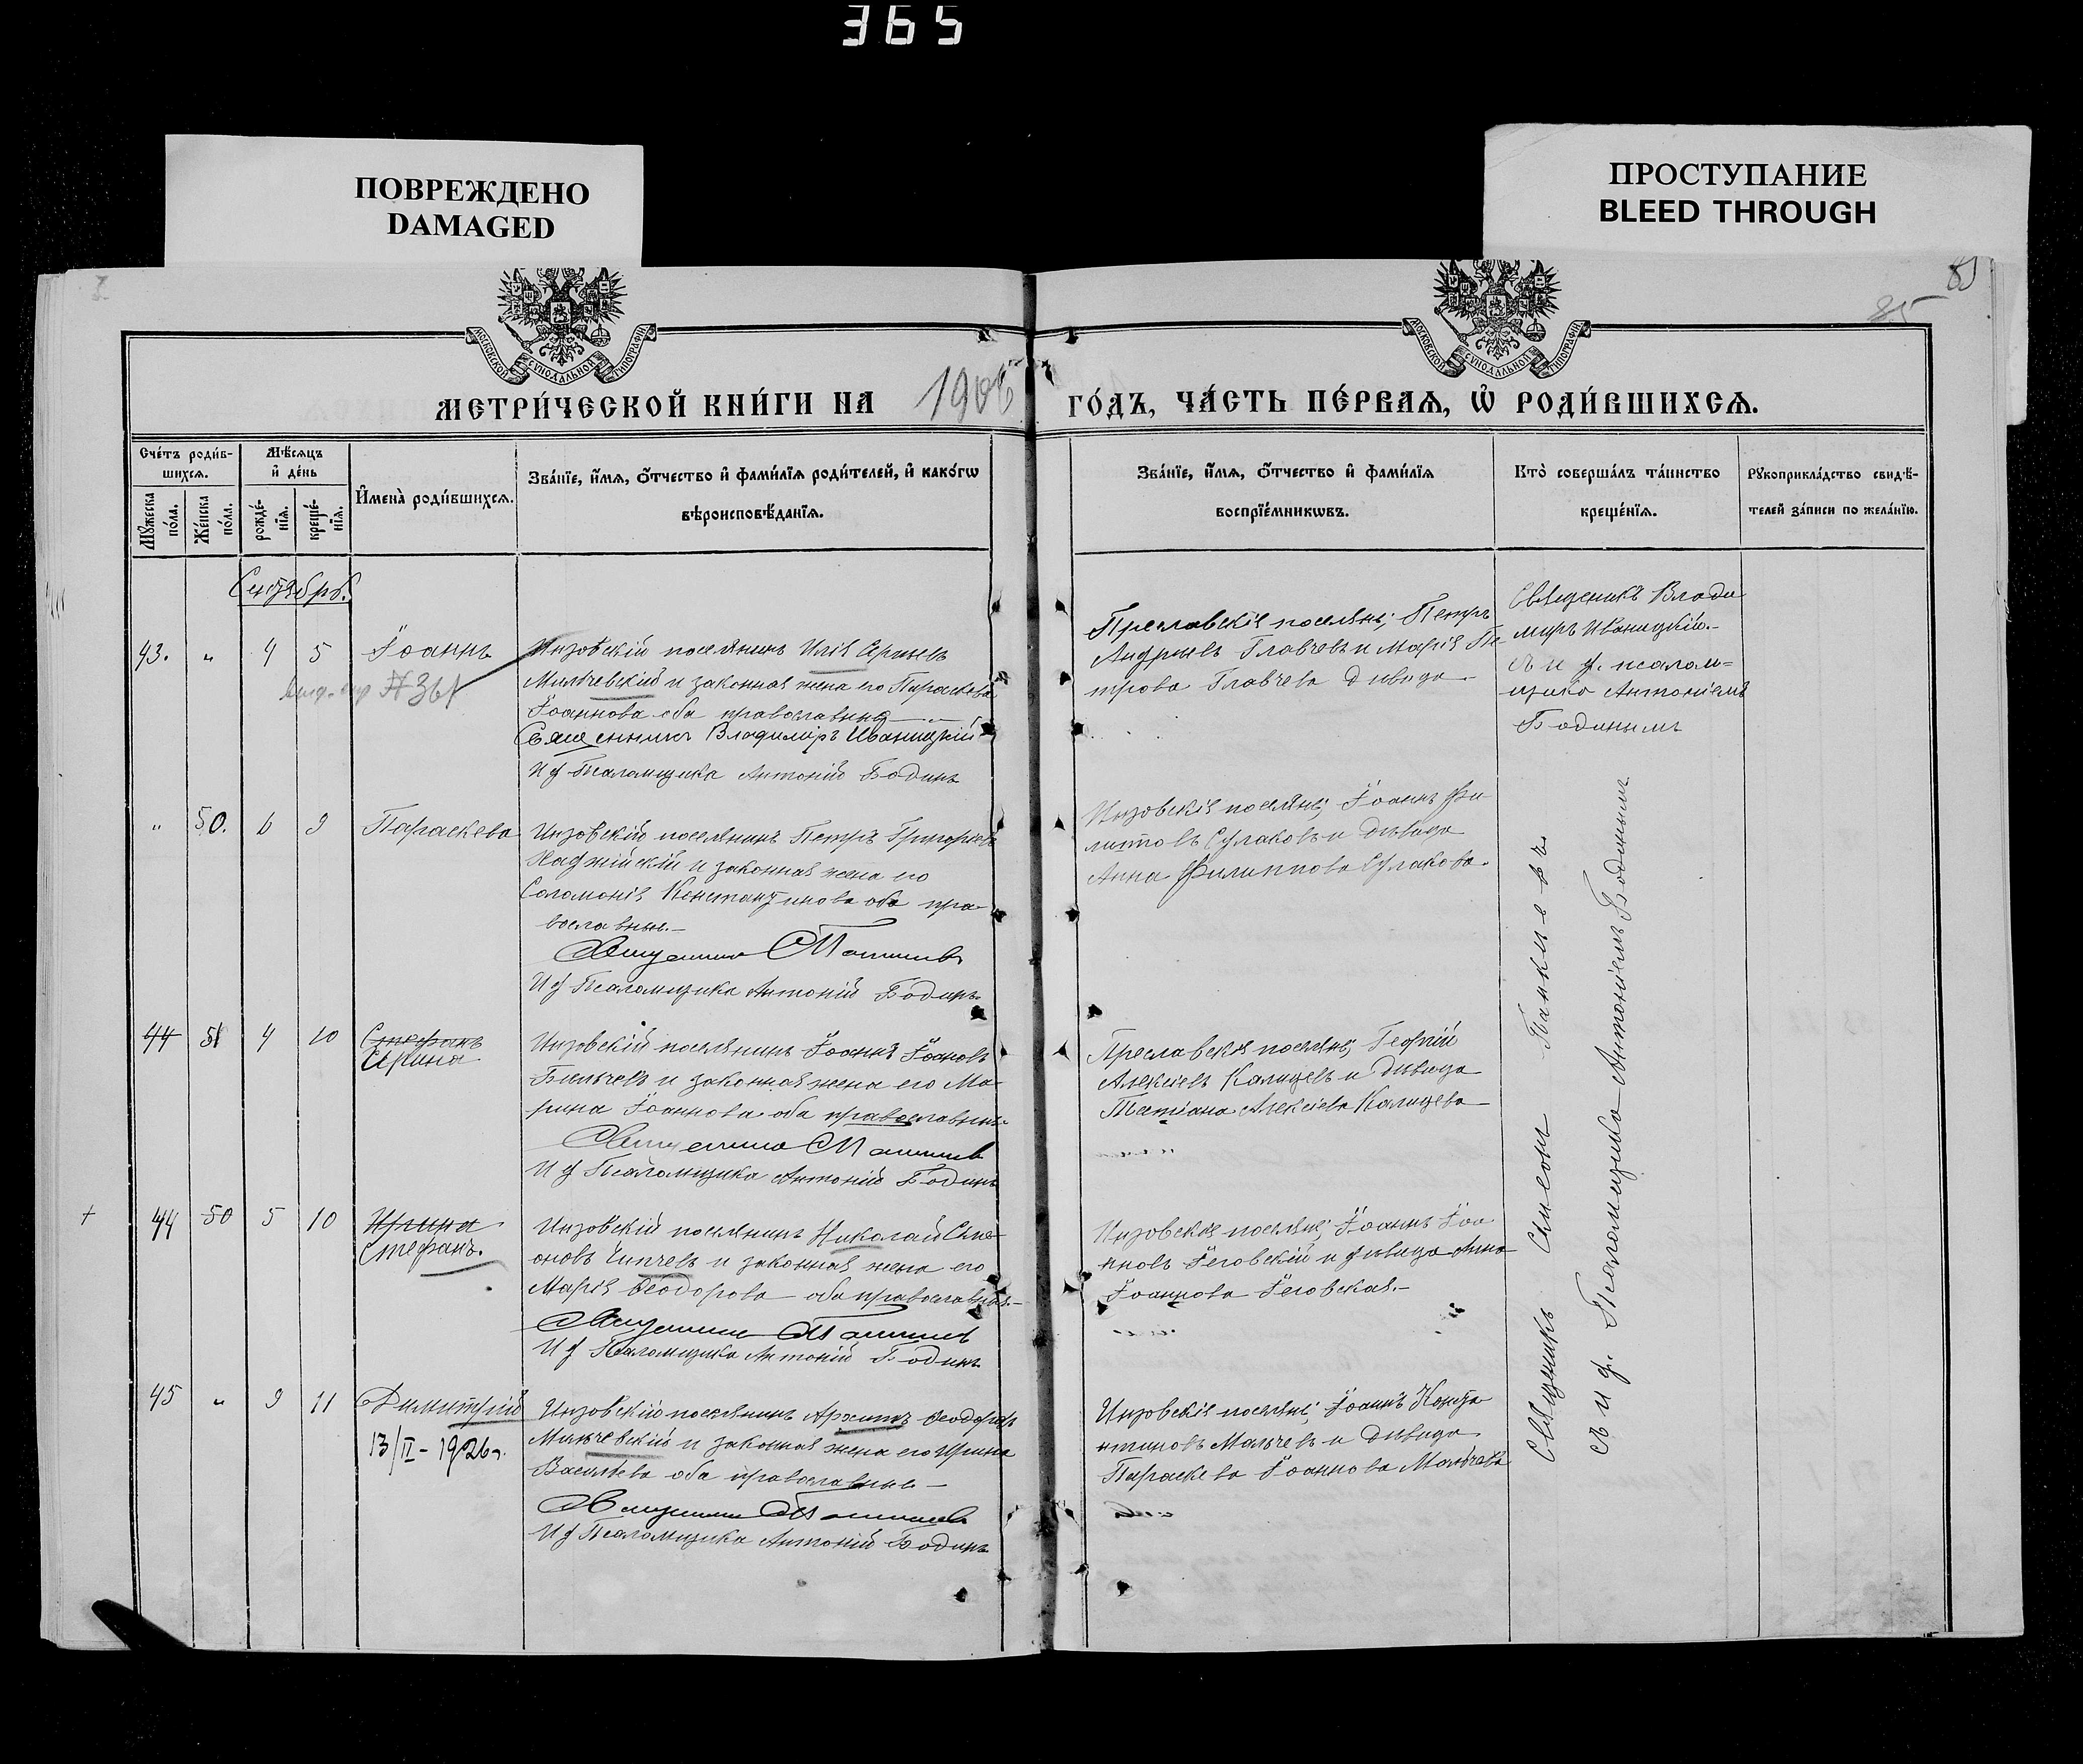 365
ПОВРЕЖДЕНО
DAMAGED
ПРОСТУПАНИЕ
BLEED THROUGH
85
85
МОСКОВСКОЙ СѴНОДАЛЬНОЙ ТИПОГРАФІИ
МОСКОВСКОЙ СѴНОДАЛЬНОЙ ТИПОГРАФІИ
МЕТРИ́ЧЕСКОЙ КНИ́ГИ НА 1906 ГО́ДЪ, ЧА́СТЬ ПЕ́РВАѦ, Ѡ҆ РОДИ́ВШИХСѦ.
Сче́тъ роди́в-
шихсѧ.
Мꙋжеска по́ла.
Же́нска по́ла.
Мѣ́сѧцъ
и҆ де́нь
рожде́-
нїѧ.
креще́-
нїѧ.
И҆мена̀ роди́вшихсѧ.
Зва́нїе, и҆́мѧ, ѻ҆́тчество и҆ фами́лїѧ роди́телей, и҆ како́гѡ
вѣроисповѣ́данїѧ.
Зва́нїе, и҆́мѧ, ѻ҆́тчество и҆ фами́лїѧ
воспрїе́мникѡвъ.
Кто̀ соверша́лъ та́инство
креще́нїѧ.
Рꙋкоприкла́дство свидѣ́-
телей за́писи по жела́нїю.
Сентябрь.
43. " 4 5 Іоаннъ
Инзовскій поселянинъ Илія
Мильчевскій и законная жена его Параскева
Іоаннова оба православные
Священникъ Владиміръ Иваницкій
И ф Псаломщика Антоній Бодинъ
Преславскіе поселяне; Петръ
Андреевъ Главчевъ и Марія Пе-
трова Главчева девица
Священикъ Влади
міръ Иваницкій.-
съ и ф. псалом=
щика Антоніемъ
Бодинымъ
№ 361
" 50. 6 9 Параскева
Инзовскій поселянинъ Петръ Григорьевъ
Хаджійскій и законная жена его
Соломонія Константинова оба пра-
вославные.-
Священникъ
И ф Псаломщика Антоній Бодинъ.
Инзовскіе поселяне; Іоаннъ Фи
липовъ и девица
Анна Филиппова
44 51 4 10 Стефанъ
Ирина
Инзовскій поселянинъ Іоаннъ Іоановъ
Бильчевъ и законная жена его Ма-
рина Іоаннова оба православные.
Священникъ
И ф Псаломщика Антоній Бодинъ
Преславскіе поселяне; Георгій
Алексіевъ Калицевъ и девица
Татіана Алексіева Калицева
+ 44 50 5 10 Ирина
Стефанъ.
Инзовскій поселянинъ Николай Симе
оновъ Чипчевъ и законная жена его
Марія Ѳеодорова оба православные.-
Священникъ
И ф Псаломщика Антоній Бодинъ
Инзовскіе поселяне; Іоаннъ Іоа
нновъ Геговскій и девица Анна
Іоаннова Геговская.-
45 " 9 11 Димитрій
13/II - 1926 г.
Инзовскій поселянинъ Архипъ Ѳеодоровъ
Минчевскій и законная жена его Ирина
Васильева оба православные -
Священникъ
И ф Псаломщика Антоній Бодинъ
Инзовскіе поселяне; Іоаннъ Конста
нтиновъ Мальчевъ и девица
Параскева Іоаннова Мальчева
Священникъ Симеонъ
съ и ф. Псаломщика Антоніемъ Бодинымъ